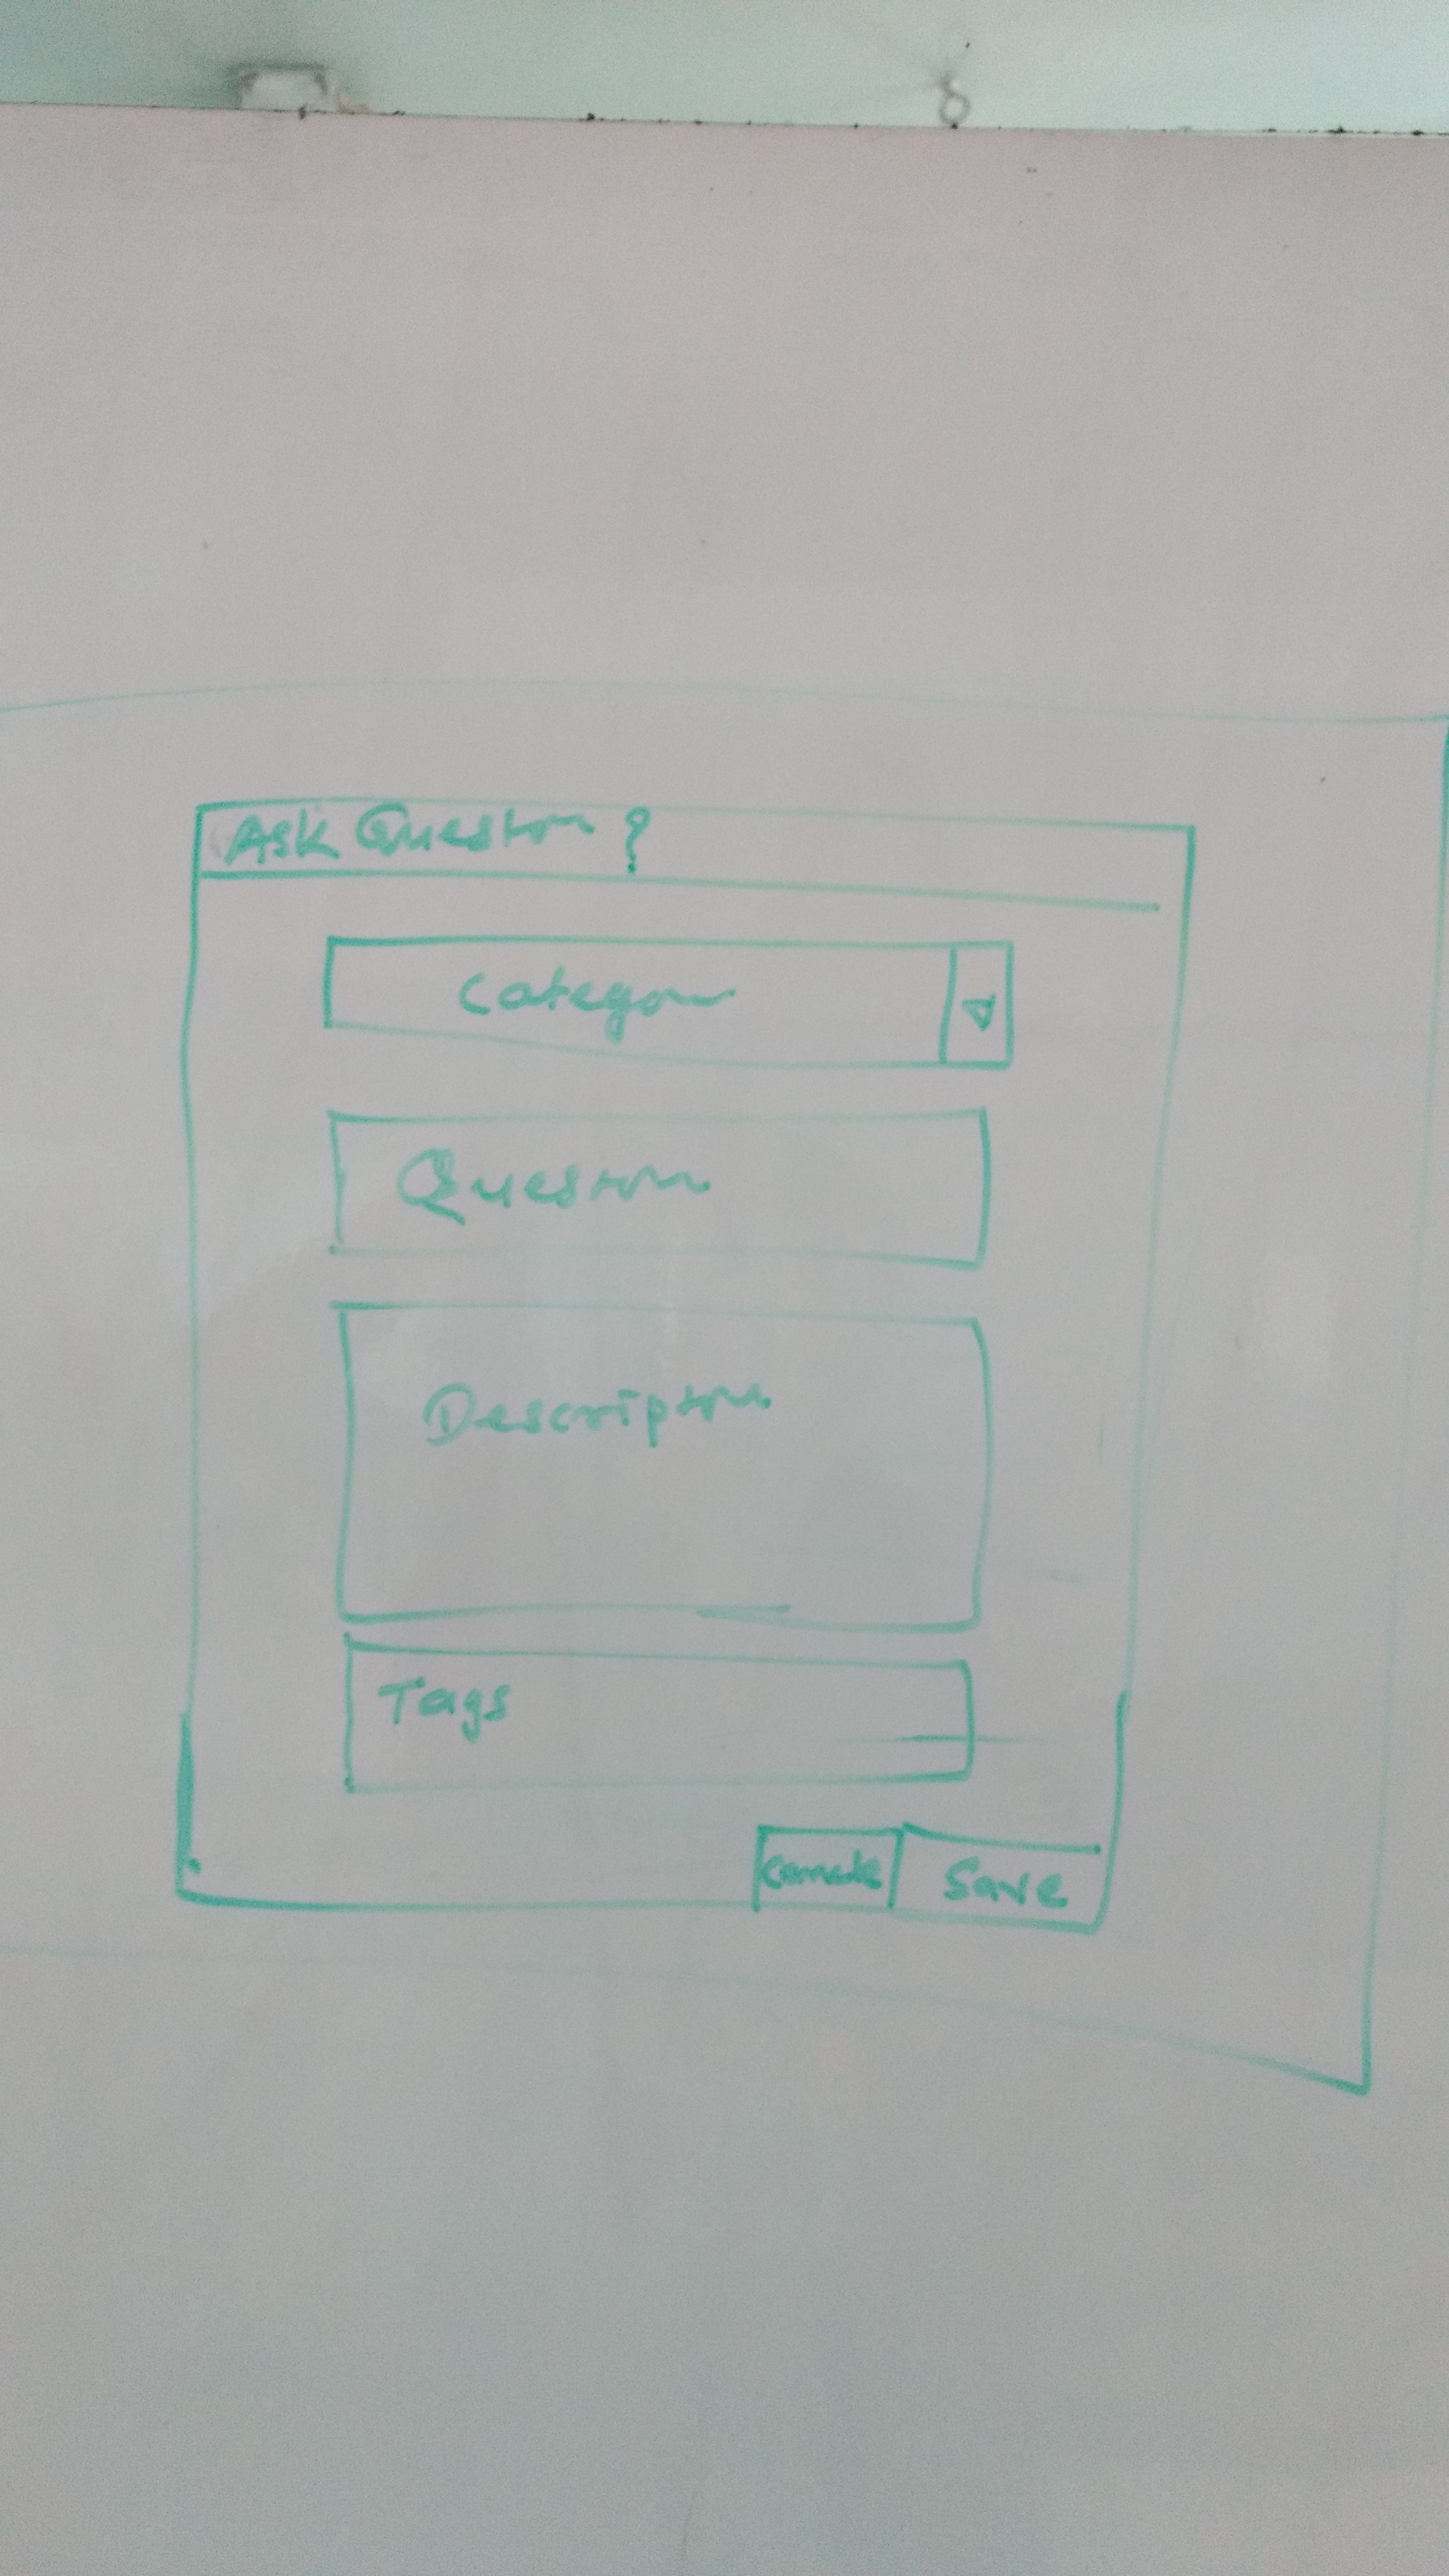 Ask Question ?
Category
Question
Description
Tags
Cancel Save